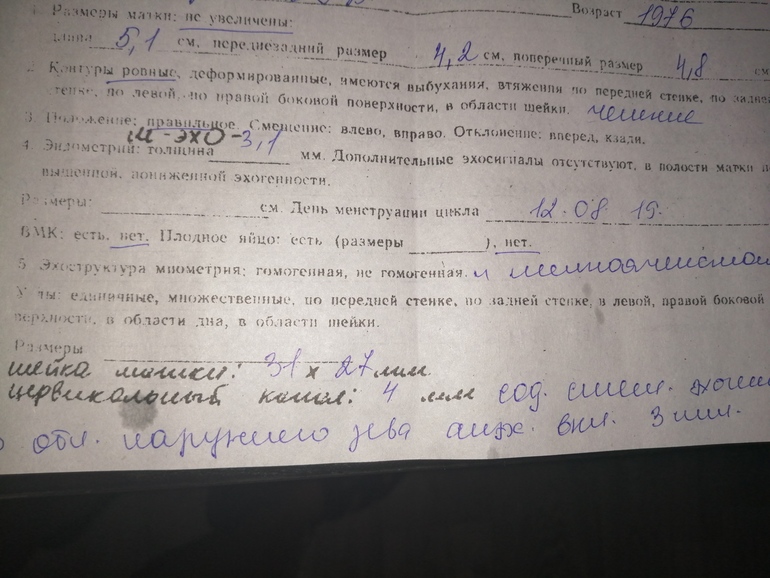 Возраст 1976
1. Размеры матки: не увеличены:
длина 5,1 см, переднезадний размер 4,2 см, поперечный размер 4,8 см
2. Контуры ровные, деформированные, имеются выбухания, втяжения по передней стенке, по задней
стенке, по левой, по правой боковой поверхности, в области шейки. четкие
3. Положение: правильное. Смещение: влево, вправо. Отклонение: вперед, кзади.
М-ЭХО - 3,1
4. Эндометрий: толщина мм. Дополнительные эхосигналы отсутствуют, в полости матки
вышенной, пониженной эхогенности.
Размеры: см. День менструации цикла 12.08 19.
ВМК: есть, нет. Плодное яйцо: есть (размеры ), нет.
5. Эхоструктура миометрия: гомогенная, не гомогенная.
Узлы: единичные, множественные, по передней стенке, по задней стенке, в левой, правой боковой
верхности, в области дна, в области шейки.
Размеры
шейка матки: 31 x 27 мм
цервикальный канал: 4 мм сод. смеш. эхоген
обл. наружнего зева анэх. вкл. 3 мм.